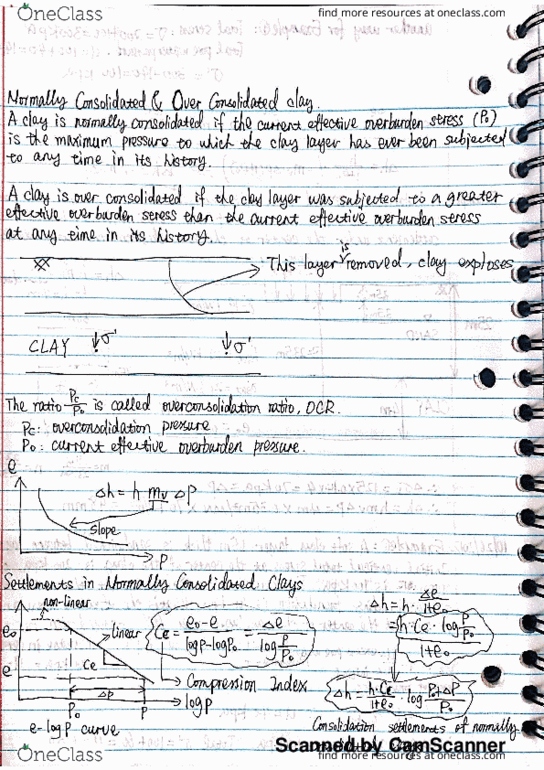 OneClass
find more resources at oneclass.com
Normally Consolidated & Over Consolidated clay.
A clay is normally consolidated if the current effective overburden stress (P₀)
is the maximum pressure to which the clay layer has ever been subjected
to any time in its history.
A clay is over consolidated if the clay layer was subjected to a greater
effective overburden stress than the current effective overburden stress
at any time in its history.
This layer is removed, clay exploses
CLAY ↓σ' ↓σ'
The ratio Pc/P₀ is called overconsolidation ratio, OCR.
Pc: overconsolidation pressure
P₀: current effective overburden pressure.
e
Δh = h mv ΔP
slope
P
Settlements in Normally Consolidated Clays
non-linear
linear
e₀
e
Cc
ΔP
P₀ P
logP
e-logP curve
Cc = (e₀-e)/(logP-logP₀) = Δe/(log P/P₀)
Compression Index
Δh = h · Δe/(1+e₀)
= h · Cc · log P/P₀ / (1+e₀)
Δh = h·Cc/(1+e₀) · log (P₀+ΔP)/P₀
Consolidation settlements of normally
Scanned by CamScanner
OneClass
find more resources at oneclass.com